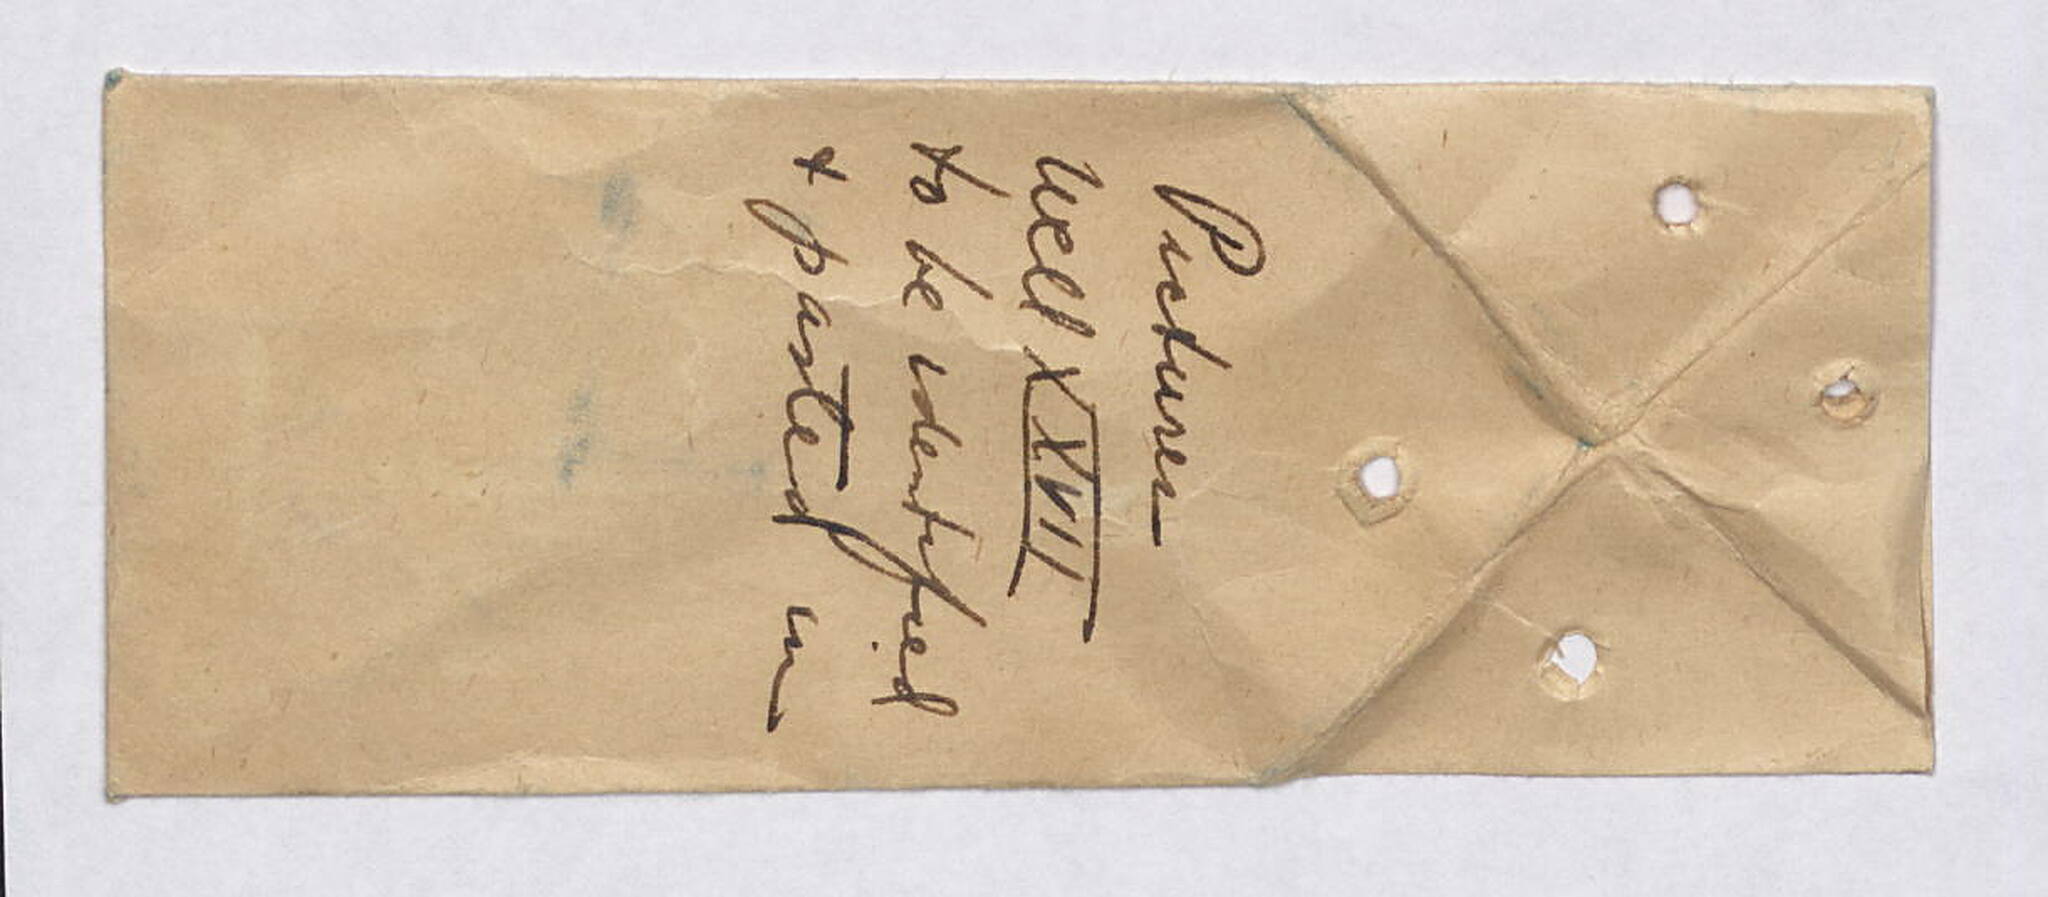 Pictures
Well XXVII
to be identified
+ pasted in